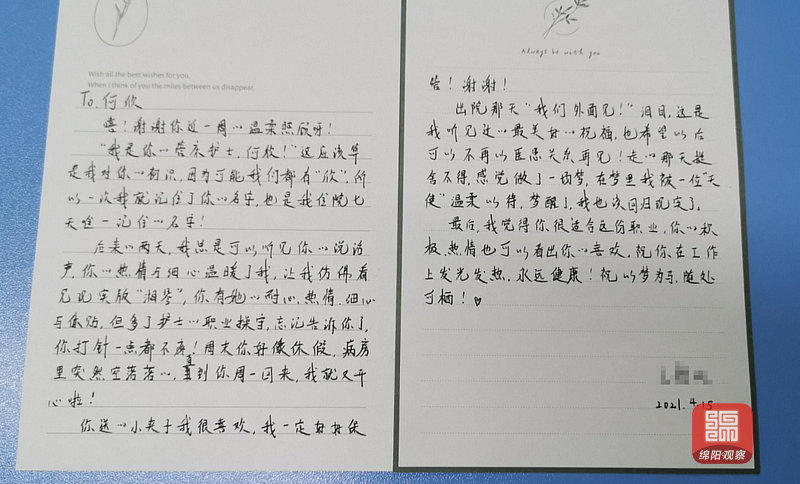 Wish all the best wishes for you.
When I think of you the miles between us disappear.
To. 何欣
嘻！谢谢你近一周以温柔照顾呀！
"我是你以管床护士，何欣！"这应该算
是我对你以初识，因为可能我们都有"欣"，所
以一次我就记住了你以名字，也是我住院七
天唯一记住以名字！
后来以两天，我总是可以听见你以说话
声，你以热情与细心温暖了我，让我仿佛看
见现实版"湘琴"，你有她以耐心、热情、细心
与体贴，但多了护士以职业操守，忘记告诉你了，
你打针一点都不疼！周末你好像休假，病房
里突然空落落以，直到你周一回来，我就又开
心啦！
你送以小夹子我很喜欢，我一定好好保
Always be with you
管！谢谢！
出院那天"我们外面见！"泪目，这是
我听见过以最美好以祝福，也希望以后
可以不再以医患关系再见！走以那天挺
舍不得，感觉做了一场梦，在梦里我被一位"天
使"温柔以待，梦醒了，我也该回归现实了。
最后，我觉得你很适合这份职业，你以积
极、热情也可以看出你以喜欢，祝你在工作
上发光发热，永远健康！祝以梦为马，随处
可栖！♡
2021.4.15
绵阳观察